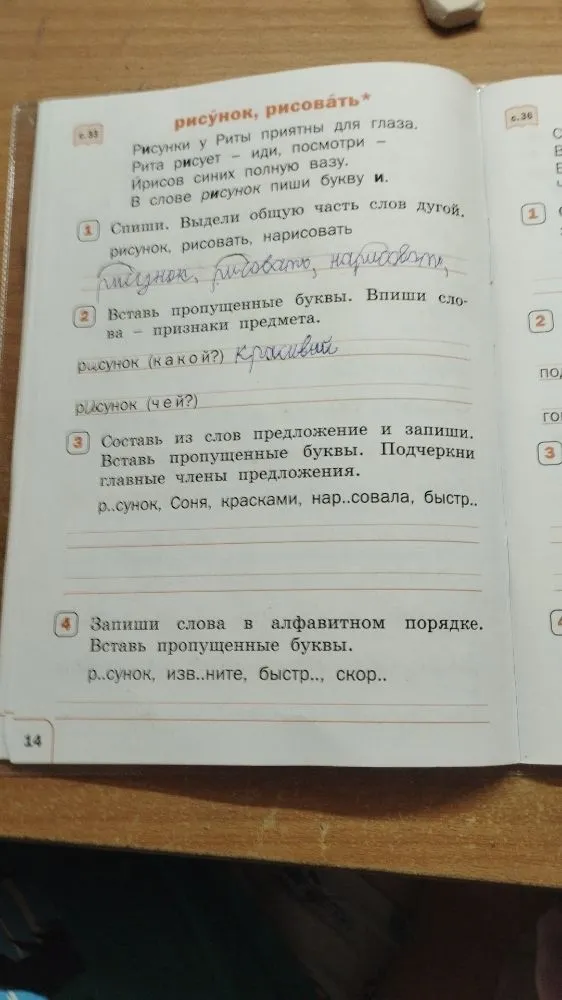 с. 33
рису́нок, рисова́ть*
Рисунки у Риты приятны для глаза.
Рита рисует – иди, посмотри –
Ирисов синих полную вазу.
В слове рисунок пиши букву и.
1 Спиши. Выдели общую часть слов дугой.
рисунок, рисовать, нарисовать
рисунок, рисовать, нарисовать,
2 Вставь пропущенные буквы. Впиши сло-
ва – признаки предмета.
рисунок (какой?) красивый
рисунок (чей?)
3 Составь из слов предложение и запиши.
Вставь пропущенные буквы. Подчеркни
главные члены предложения.
р..сунок, Соня, красками, нар..совала, быстр..
4 Запиши слова в алфавитном порядке.
Вставь пропущенные буквы.
р..сунок, изв..ните, быстр.., скор..
14
с. 36
1
2
3